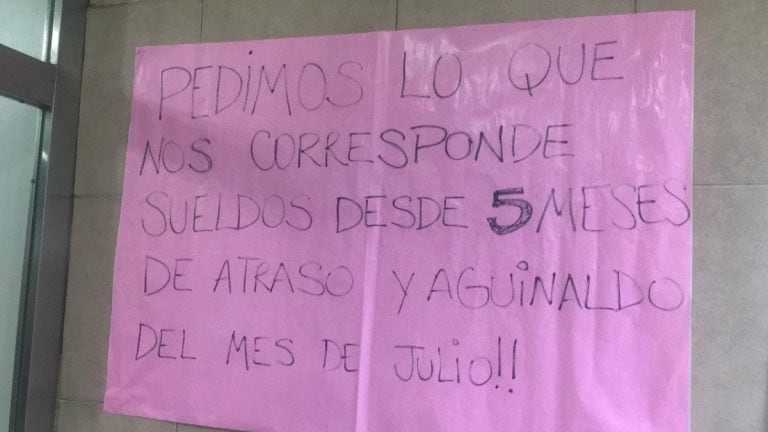 PEDIMOS LO QUE
NOS CORRESPONDE
SUELDOS DESDE 5 MESES
DE ATRASO Y AGUINALDO
DEL MES DE JULIO!!